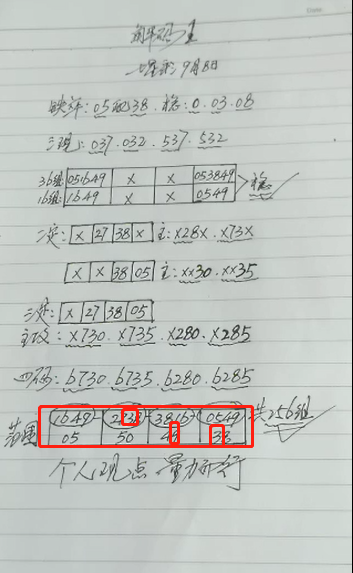 一星彩9月8日
缺羊:05现38.稳:0.03.08
三现:037.032.537.532
36组:051649 X X 053849 稳
16组:1649 X X 0549
二定:X 27 38 X 主:X28X.X73X
X X 38 05 主:XX30.XX35
三定:X 27 38 05
主攻:X730.X735.X280.X285
四码:6730.6735.6280.6285
范围 1649 3816 0549 共256组
05 50
个人观点 量力而行